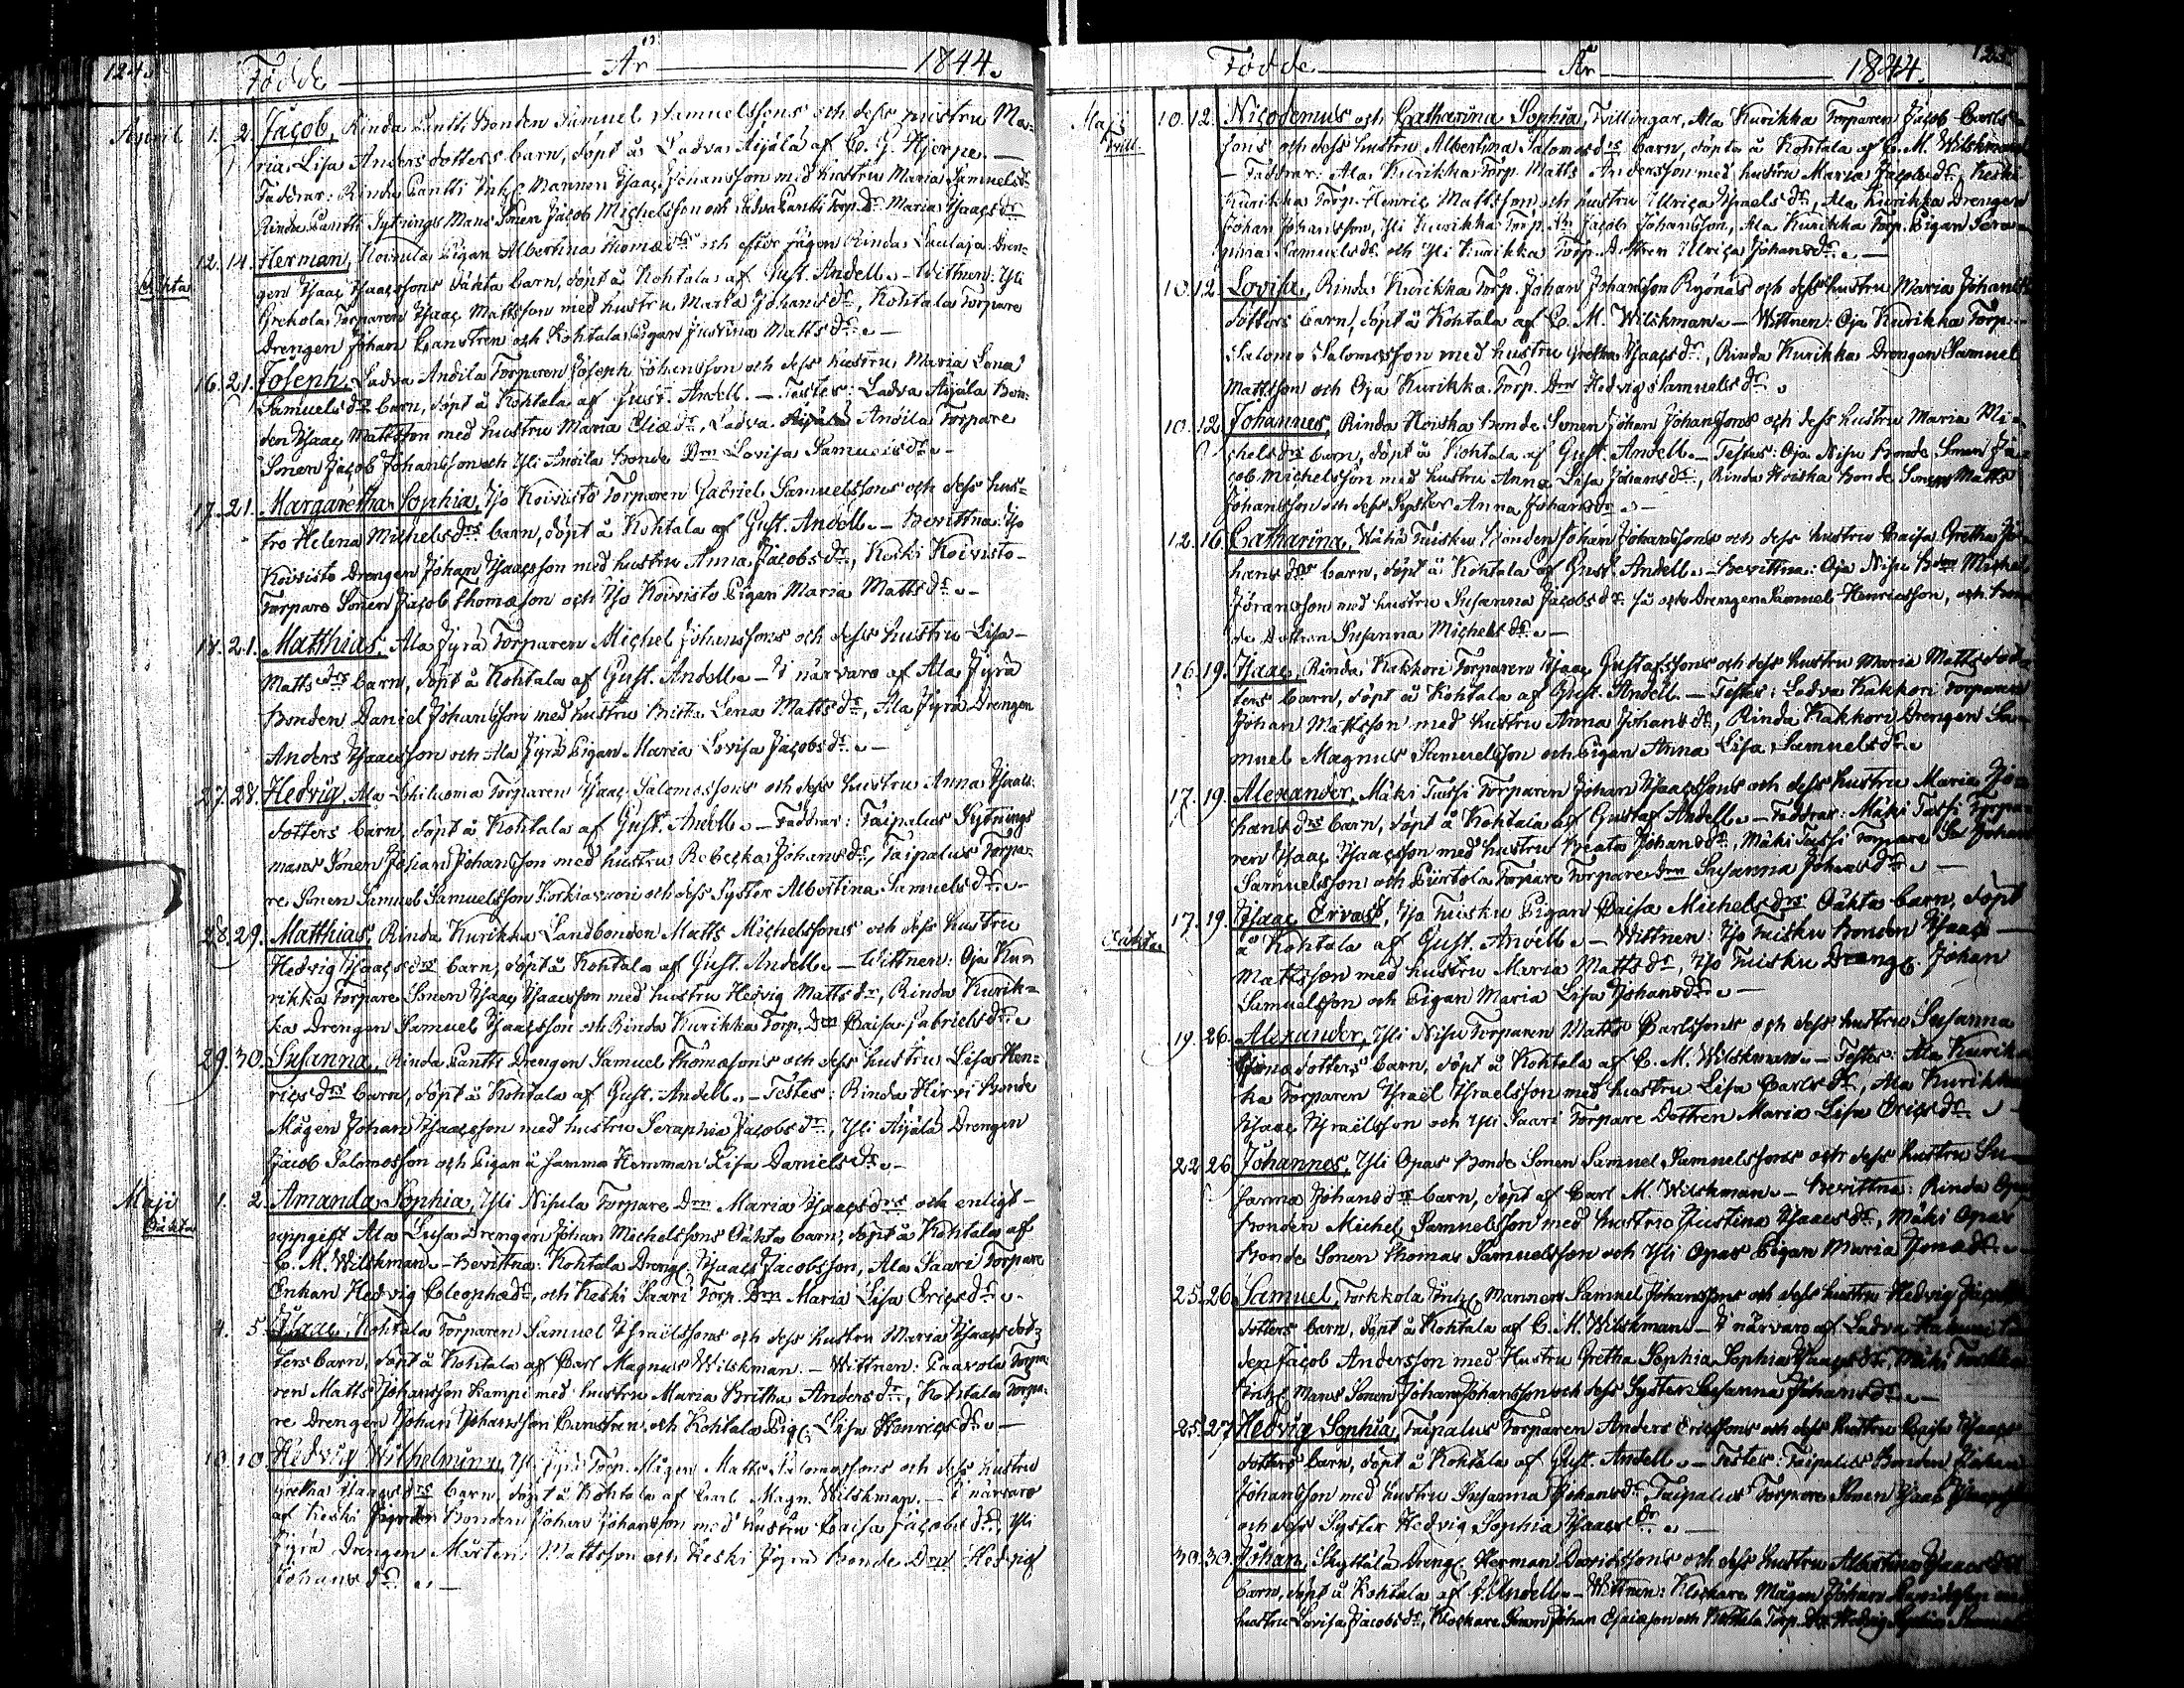 124.
Födde År 1844.
April 1. 2. Jacob, Rinda Pantti Bonden Samuel Samuelssons och dess hustru Ma-
ria Lisa Andersdotters barn, döpt å Ladva Äijälä af C. G. Hjerpe. —
Faddrar: Rinda Pantti Inh: Mannen Isaac Johansson med hustru Maria Samuelsdr
Rinda Pantti Sytnings Mans Sonen Jacob Michelsson och Ladva Pantti Torp. Dr Maria Isaacsdr
12. 14. Herman, Pigan Albertina Thomædrs och efter sägen Rinda Laulaja Dren-
Oäkta gen Isaac Isaacssons oäkta barn, döpt å Kohtala af Gust. Andell. — Wittnen: Yli
Torparen Isaac Mattsson med hustru Maria Johansdr, Kohtala Torpare
Drengen Johan Canstren och Kohtala Pigan Justina Mattsdr. —
16. 21. Joseph, Ladva Anðila Torparen Joseph Johansson och dess hustru Maria Lena
Samuelsdrs barn, döpt å Kohtala af Gust. Andell. — Testes: Ladva Äijälä Bon-
den Isaac Mattsson med hustru Maria Eliædr, Ladva Anðila Torpare
Sonen Jacob Johansson och Yli Anðila Bonde Drn Lovisa Samuelsdr. —
17. 21. Margaretha Sophia, Iso Koivisto Torparen Gabriel Samuelssons och dess hus-
tru Helena Michelsdrs barn, döpt å Kohtala af Gust. Andell. — Bevittna: Iso
Koivisto Drengen Johan Isaacsson med hustru Anna Jacobsdr, Keski Koivisto
Torpare Sonen Jacob Thomæson och Iso Koivisto Pigan Maria Mattsdr. —
18. 21. Matthias, Ala Jyrä Torparen Michel Johanssons och dess hustru Lisa
Mattsdrs barn, döpt å Kohtala af Gust. Andell. — I närvaro af Ala Jyrä
Bonden Daniel Johansson med hustru Britha Lena Mattsdr, Ala Jyrä Drengen
Anders Isaacsson och Ala Jyrä Pigan Maria Lovisa Jacobsdr. —
27. 28. Hedvig, Ala Torparen Isaac Salomossons och dess hustru Anna Isaacs-
dotters barn, döpt å Kohtala af Gust. Andell. — Faddrar: Taipalus Sytnings
mans Sonen Johan Johansson med hustru Rebecka Johansdr, Taipalus Torpa-
re Sonen Samuel Samuelsson och dess Syster Albertina Samuelsdr. —
28. 29. Matthias, Rinda Kurikka Landbonden Matts Michelssons och dess hustru
Hedvig Isaacsdrs barn, döpt å Kohtala af Gust. Andell. — Wittnen: Oja Ku-
rikka Torpare Sonen Isaac Isaacsson med hustru Hedvig Mattsdr, Rinda Kurik-
ka Drengen Samuel Isaacsson och Rinda Kurikka Torp. Drn Caisa Gabrielsdr.
29. 30. Susanna, Rinda Pantti Drengen Samuel Thomæsons och dess hustru Lisa Hen-
ricsdrs barn, döpt å Kohtala af Gust. Andell. — Testes: Rinda Hirvi Bonde
Mågen Johan Isaacsson med hustru Seraphia Jacobsdr, Yli Äijälä Drengen
Jacob Salomosson och Pigan å samma Hemman Lisa Danielsdr. —
Maji 1. 2. Amanda Sophia, Yli Nisula Torpare Drn Maria Isaacsdrs och enligt
Oäkta uppgift Ala Drengen Johan Michelssons Oäkta barn, döpt å Kohtala af
C. M. Wilskman. — Bevittna: Kohtala Dreng: Isaac Jacobsson, Ala Saari Torpare
Enkan Hedvig Cleophædr, och Keski Saari Torp. Drn Maria Lisa Ericsdr. —
4. 5. Isaac, Kohtala Torparen Samuel Israelssons och dess hustru Maria Isaacsdot-
ters barn, döpt å Kohtala af Carl Magnus Wilskman. — Wittnen: Paavola Torpa-
ren Matts Johansson Kampi med hustru Maria Britha Andersdr, Kohtala Torpa-
re Drengen Johan Johansson Canstren och Kohtala Pig: Lisa Henricsdr. —
10. 10. Hedvig Wilhelmina, Yli Jyrä Torp. Mågen Matts Salomossons och dess hustru
Gretha Isaacsdrs barn, döpt å Kohtala af Carl Magn. Wilskman. — I närvaro
af Keski Bonden Johan Johansson med hustru Caisa Jacobsdr, Yli
Jyrä Drengen Mårten Mattsson och Keski Jyrä Bonde Drn Hedvig
Johansdr. —
125.
Födde År 1844.
Maji 10. 12. Nicodemus och Catharina Sophia, Tvillingar, Ala Kurikka Torparen Jacob Carls-
Tvill. sons och dess hustru Albertina Salomosdrs barn, döpta å Kohtala af C. M. Wilskman
— Faddrar: Ala Kurikka Torp. Matts Andersson med hustru Maria Jacobsdr, Keski
Kurikka Torp. Henric Mattsson och hustru Ulrica Israelsdr, Ala Kurikka Drengen
Johan Johansson, Yli Kurikka Torp. Sn Jacob Johansson, Ala Kurikka Torp. Pigan Sera-
phina Samuelsdr och Yli Kurikka Torp. Dottren Ulrica Johansdr. —
10. 12. Lovisa, Rinda Kurikka Torp. Johan Johansson Ryönäs och dess hustru Maria Johans
dotters barn, döpt å Kohtala af C. M. Wilskman. — Wittnen: Oja Kurikka Torp.
Salomo Salomosson med hustru Gretha Isaacsdr, Rinda Kurikka Drengen Samuel
Mattsson och Oja Kurikka Torp. Drn Hedvig Samuelsdr.
10. 12. Johannes, Rinda Koiska Bonde Sonen Johan Johanssons och dess hustru Maria Mi-
chelsdrs barn, döpt å Kohtala af Gust. Andell. — Testes: Oja Nisu Bonde Sonen Ja-
cob Michelsson med hustru Anna Lisa Johansdr, Rinda Koiska Bonde Sonen Matts
Johansson och dess Syster Anna Johansdr. —
12. 16. Catharina, Wähä Tuisku Bonden Johan Johanssons och dess hustru Caisa Gretha Jo-
hansdrs barn, döpt å Kohtala af Gust. Andell. — Bevittna: Oja Nisu Bdn Michel
Göransson med hustru Susanna Jacobsdr, så ock Drengen Samuel Henricsson, och Bon-
de Dottren Susanna Michelsdr. —
16. 19. Isaac, Rinda Kakkori Torparen Isaac Gustafssons och dess hustru Maria Mattsdot-
ters barn, döpt å Kohtala af Gust. Andell. — Testes: Ladva Kakkori Torparen
Johan Mattsson med hustru Anna Johansdr, Rinda Kakkori Drengen Sa-
muel Magnus Samuelsson och Pigan Anna Lisa Samuelsdr.
17. 19. Alexander, Mäki Tassi Torparen Johan Isaacssons och dess hustru Maria Jo-
hansdrs barn, döpt å Kohtala af Gustaf Andell. — Faddrar: Mäki Tassi Torpa-
ren Isaac Isaacsson med hustru Beata Johansdr, Mäki Tassi Torpare Sn Johan
Samuelsson och Piirtola Torpare Torpare Drn Susanna Johansdr. —
17. 19. Isaac Ervast, Iso Tuisku Pigan Caisa Michelsdrs Oäkta barn, döpt
Oäkta å Kohtala af Gust. Andell. — Wittnen: Iso Tuisku Bonden Isaac
Mattsson med hustru Maria Mattsdr, Iso Tuisku Dreng: Johan
Samuelsson och Pigan Maria Lisa Johansdr. —
19. 26. Alexander, Yli Nisu Torparen Matts Carlssons och dess hustru Susanna
Jonædotters barn, döpt å Kohtala af C. M. Wilskman. — Testes: Ala Kurik-
ka Torparen Israël Israelsson med hustru Lisa Carlsdr, Ala Kurikka
Isaac Israëlsson och Yli Saari Torpare Dottren Maria Lisa Ericsdr. —
22. 26. Johannes, Yli Opas Bonde Sonen Samuel Samuelssons och dess hustru Su-
sanna Johansdrs barn, döpt af Carl M. Wilskman. — Bevittna: Rinda Opas
Bonden Michel Samuelsson med hustru Justina Isaacsdr, Mäki Opas
Bonde Sonen Thomas Samuelsson och Yli Opas Pigan Maria Jonædr.
25. 26. Samuel, Torkkola Inh: Mannen Samuel Johanssons och dess hustru Hedvig Jacobs
dotters barn, döpt å Kohtala af C. M. Wilskman. — I närvaro af Ladva
den Jacob Andersson med Hustru Gretha Sophia Sophia Isaacsdr, Mäki
Inh: Mans Sonen Johan Johansson och dess Syster Susanna Johansdr. —
25. 27. Hedvig Sophia, Taipalus Torparen Anders Ericssons och dess hustru Caisa Isaacs
dotters barn, döpt å Kohtala af Gust. Andell. — Testes: Taipalus Bonden Johan
Johansson med hustru Susanna Johansdr, Taipalus Torpare Sonen Isaac
och dess Syster Hedvig Sophia Isaacsdr. —
30. 30. Johan, Skyttälä Dreng: Herman Davidssons och dess hustru Albertina Isaacsdrs
barn, döpt å Kohtala af G. Andell. — Wittnen: Klockare Mågen Johan Davidsson med
hustru Lovisa Jacobsdr, Klockare Sonen Johan Esaiæson och Kohtala Torp. Drn Hedvig Sophia